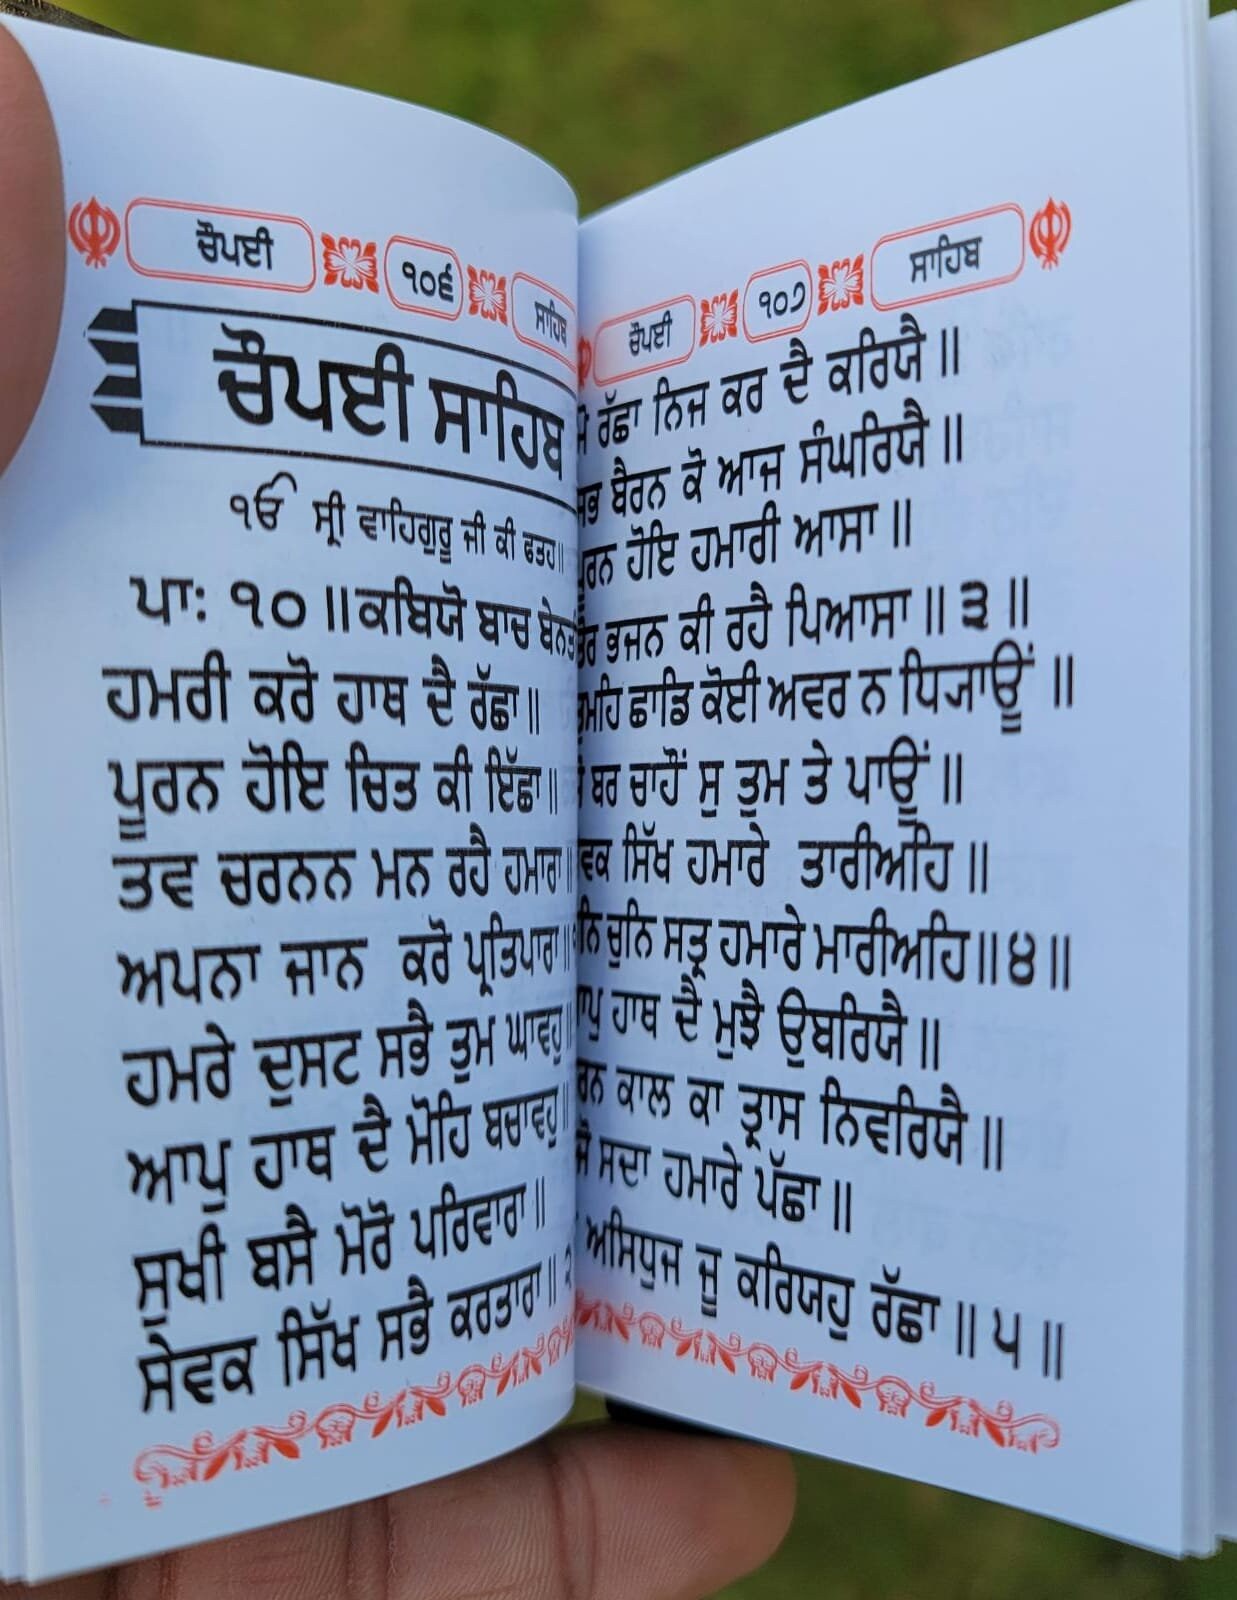 ਚੌਪਈ ੧੦੬ ਸਾਹਿਬ
ਚੌਪਈ ਸਾਹਿਬ
੧ਓ ਸ੍ਰੀ ਵਾਹਿਗੁਰੂ ਜੀ ਕੀ ਫਤਹ॥
ਪਾਃ ੧੦ ॥ ਕਬਿਯੋ ਬਾਚ
ਹਮਰੀ ਕਰੋ ਹਾਥ ਦੈ ਰੱਛਾ॥
ਪੂਰਨ ਹੋਇ ਚਿਤ ਕੀ ਇੱਛਾ॥
ਤਵ ਚਰਨਨ ਮਨ ਰਹੈ ਹਮਾਰਾ॥
ਅਪਨਾ ਜਾਨ ਕਰੋ ਪ੍ਰਤਿਪਾਰਾ॥
ਹਮਰੇ ਦੁਸਟ ਸਭੈ ਤੁਮ ਘਾਵਹੁ॥
ਆਪੁ ਹਾਥ ਦੈ ਮੋਹਿ ਬਚਾਵਹੁ॥
ਸੁਖੀ ਬਸੈ ਮੋਰੋ ਪਰਿਵਾਰਾ॥
ਸੇਵਕ ਸਿੱਖ ਸਭੈ ਕਰਤਾਰਾ॥
ਚੌਪਈ ੧੦੭ ਸਾਹਿਬ
ਰੱਛਾ ਨਿਜ ਕਰ ਦੈ ਕਰਿਯੈ॥
ਬੈਰਨ ਕੋ ਆਜ ਸੰਘਰਿਯੈ॥
ਹੋਇ ਹਮਾਰੀ ਆਸਾ॥
ਭਜਨ ਕੀ ਰਹੈ ਪਿਆਸਾ॥੩॥
ਛਾਡਿ ਕੋਈ ਅਵਰ ਨ ਧਿਯਾਊਂ॥
ਬਰ ਚਾਹੌਂ ਸੁ ਤੁਮ ਤੇ ਪਾਊਂ॥
ਸਿੱਖ ਹਮਾਰੇ ਤਾਰੀਅਹਿ॥
ਚੁਨਿ ਸਤ੍ਰ ਹਮਾਰੇ ਮਾਰੀਅਹਿ॥੪॥
ਹਾਥ ਦੈ ਮੁਝੈ ਉਬਰਿਯੈ॥
ਕਾਲ ਕਾ ਤ੍ਰਾਸ ਨਿਵਰਿਯੈ॥
ਸਦਾ ਹਮਾਰੇ ਪੱਛਾ॥
ਅਸਿਧੁਜ ਜੂ ਕਰਿਯਹੁ ਰੱਛਾ॥੫॥